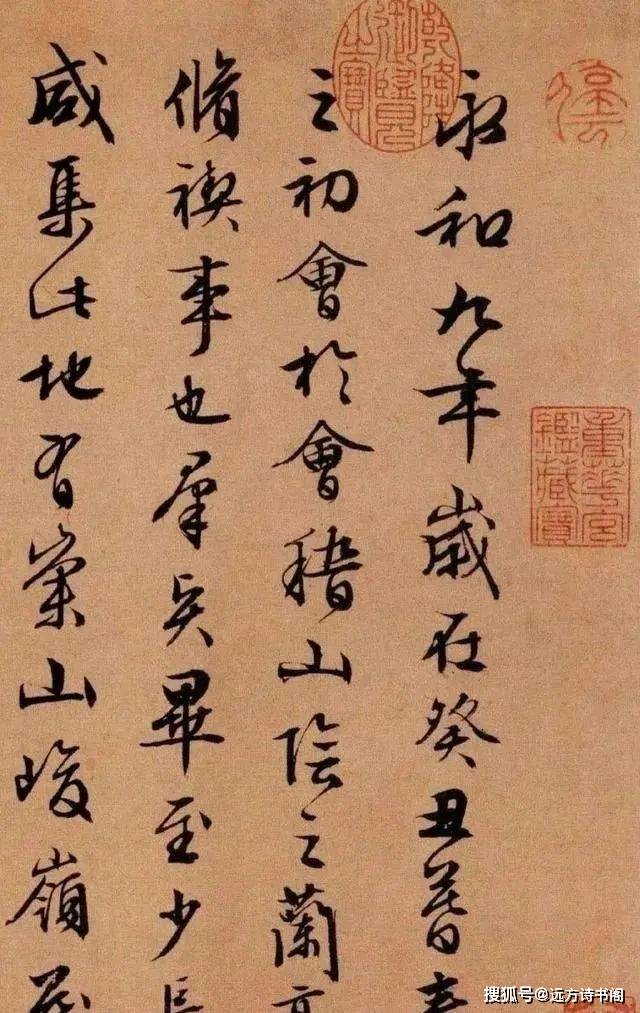 永和九年歲在癸丑暮春
之初會於會稽山陰之蘭亭
脩禊事也羣賢畢至少長
咸集此地有崇山峻嶺茂
乾隆御覽之寶
重華宮鑑藏寶
搜狐号@远方诗书阁